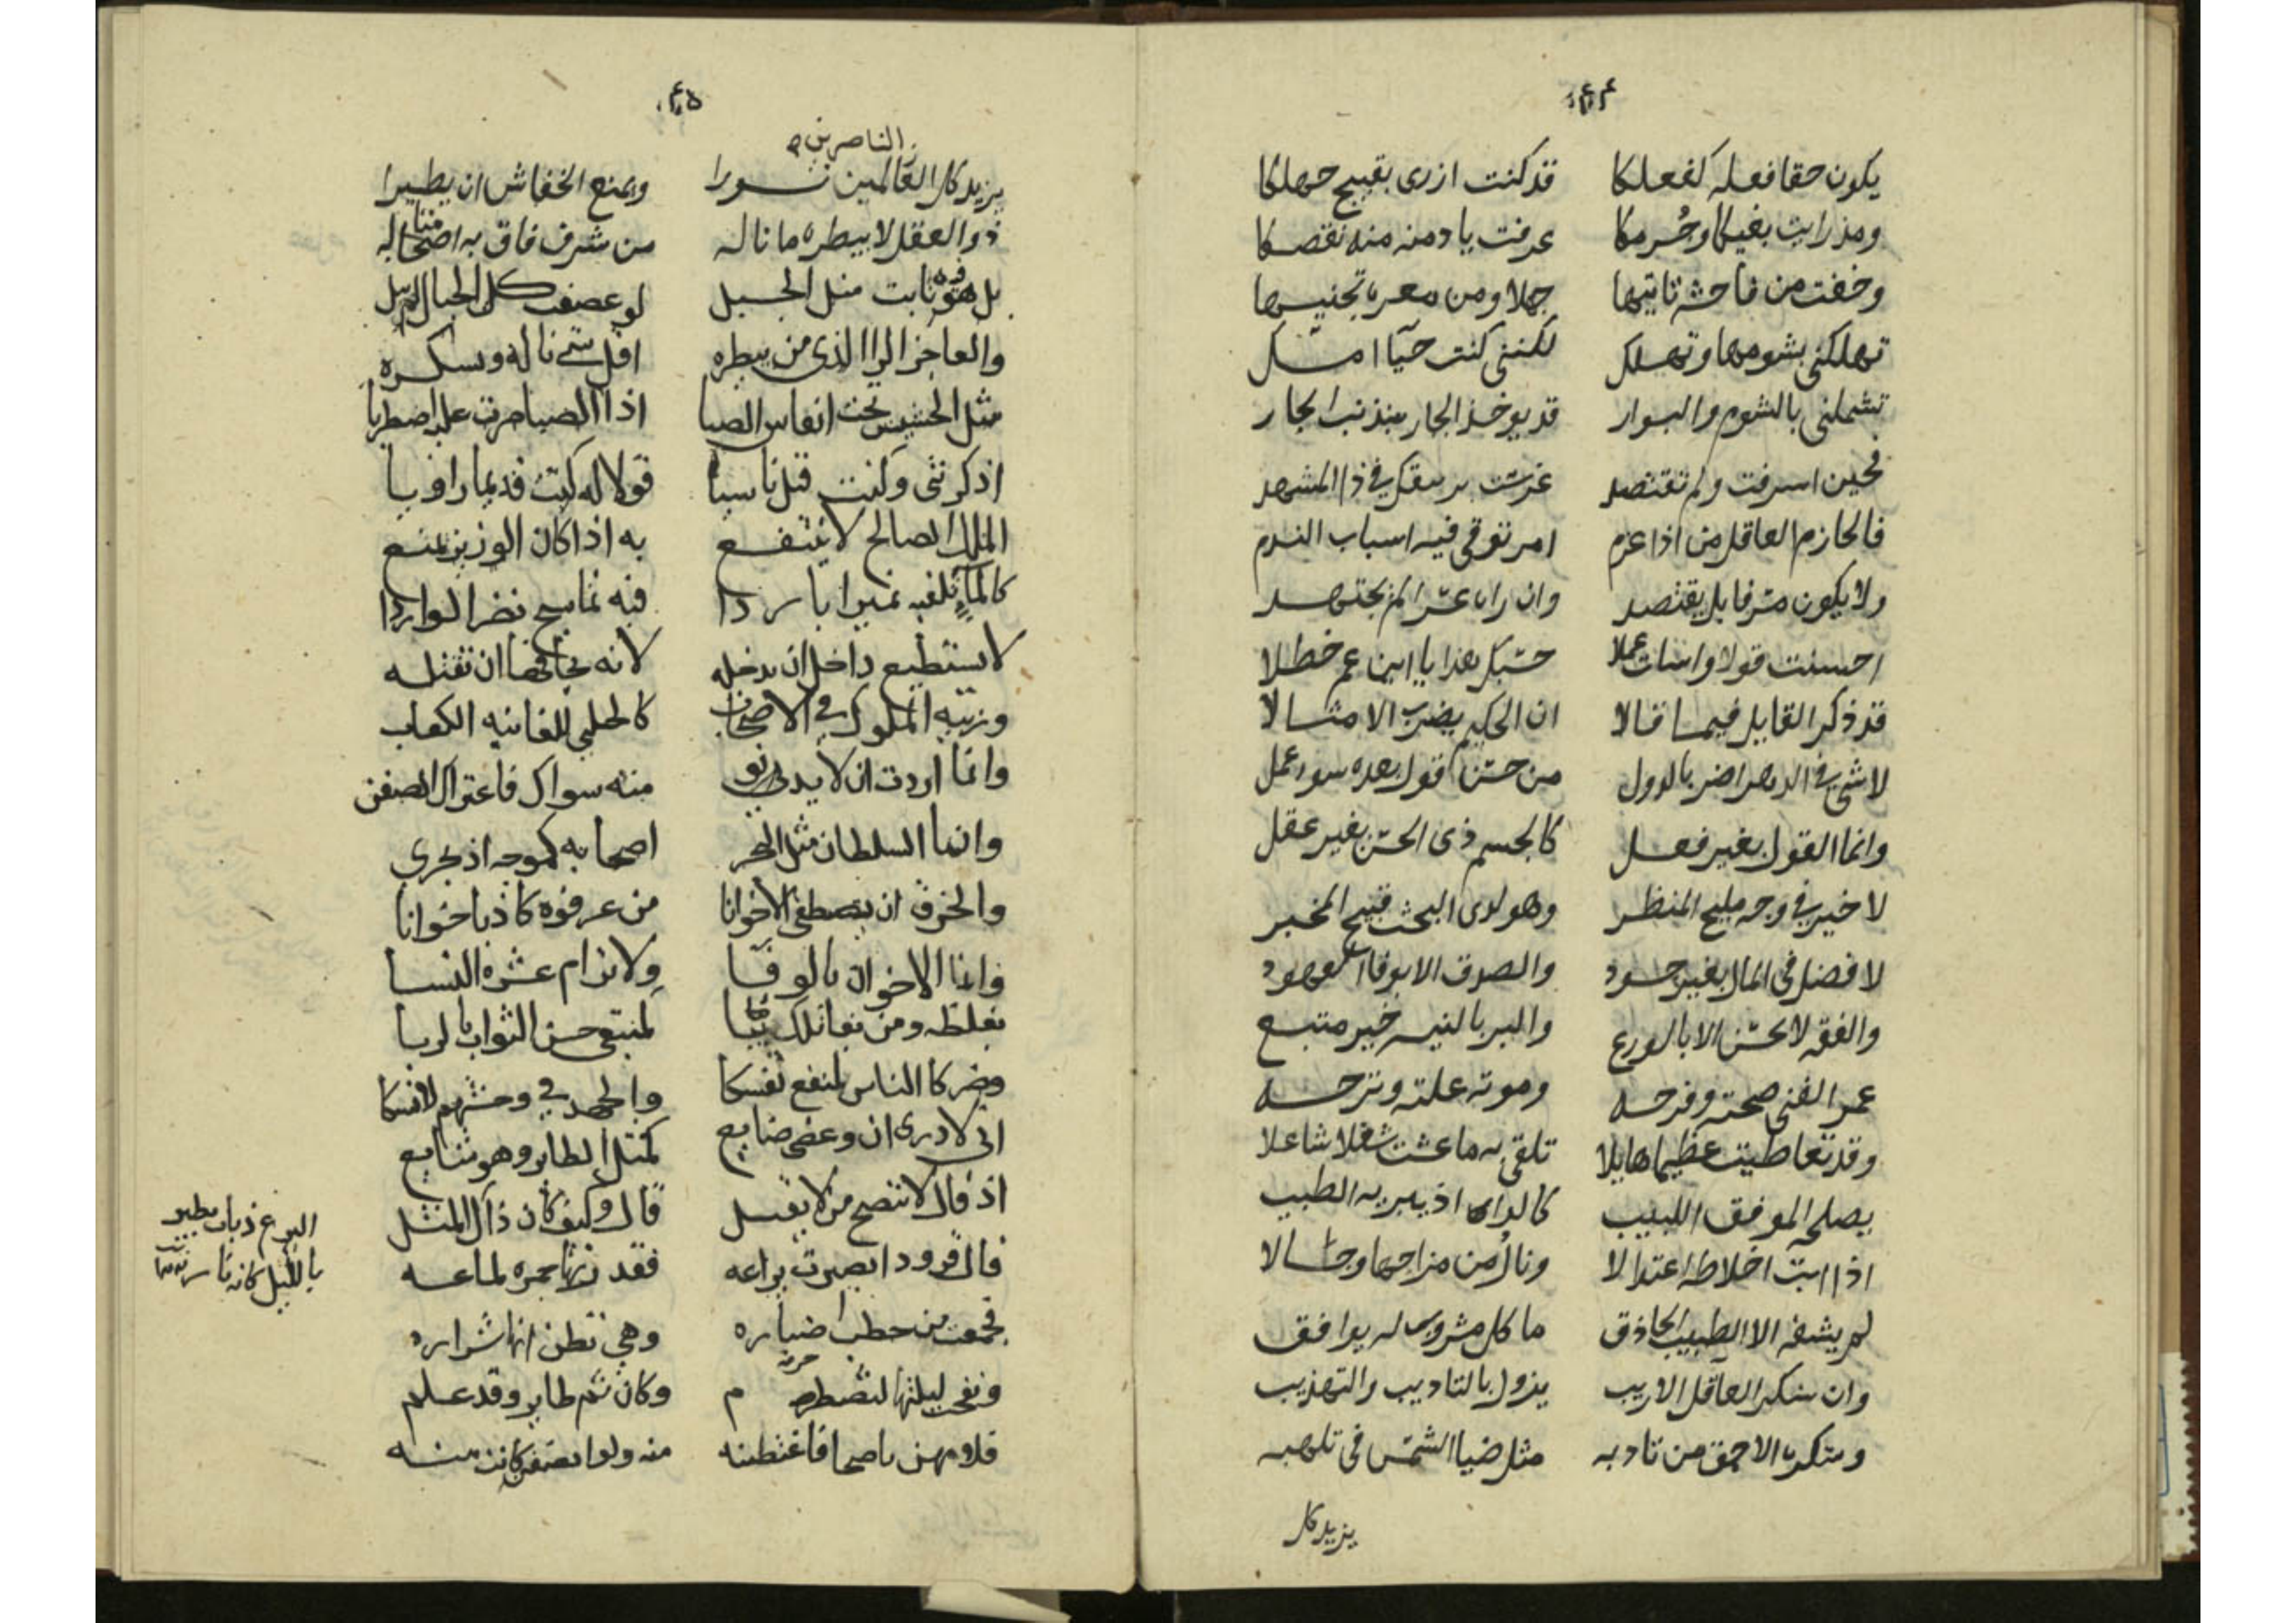 ٤٤
يكون حقا فعله كفعلكا قد كنت ازرى بقبيح جهلكا
ومذ رايت بغيكا وجرمكا عرفت يا دمنه منه نقصكا
وخفت من فاحشة تاتيها جهلا ومن معرة تجنيها
تهلكني بشومها وتهلك لكنني كنت حيآ امسك
تشملني بالشوم والبوار قد يوخذ الجار بذنب الجار
فحين اسرفت ولم تقتصد في ذا المشهد
فالحازم العاقل من اذا عزم امر توقى فيه اسباب الندم
ولا يكون مترفا بل يقتصد وان راى لم يجتهد
احسنت قولا واسات عملا حسبك هذا يا ابن عم خطلا
قد ذكر القايل فيما قالا ان الحكيم يضرب الامثالا
لا شي في الدهر اضر بالدول من حسن قول بعده سوء عمل
وانما القول بغير فعل كالجسم ذى الحسن بغير عقل
لا خير في وجه مليح المنظر وهو لدى البحث قبيح المخبر
لا فضل فى المال بغير جود والصدق الا بوفا العهود
والفقه لا يحسن الا بالورع والبر بالنيه خير متبع
عمر الفتى صحته وفرحه وموته علته وترحه
وقد تعاطيت عظيما هايلا تلقى به ما عشت شغلا شاغلا
يصلحه الموفق اللبيب كالداء اذ يبريه الطبيب
اذا ابت اخلاطه اعتدالا ونال من مزاجها وحالا
لم يشفه الا الطبيب الحاذق ما كل مشروب له يوافق
وان سكر العاقل الاريب يزول بالتاديب والتهذيب
وسكر الاحمق من تاديبه مثل ضيا الشمس فى تلهبه
يزيد كل
٤٥
الناصرين
يزيد كل العالمين نورا ويمنع الخفاش ان يطيرا
ذو العقل لا يبطره ما ناله من شرف فاق به اصحابه
بل هو ثابت مثل الجبل لو عصفت كل الجبال
والعاجز الراى الذى من يبطره اقل شى ناله ويسكره
مثل الحشيش تحت انفاس الصبا اذا الصبا مرت عليه اضطربا
اذكرتنى وكنت قبل ناسيا قولا له كنت قديما راويا
الملك الصالح لا ينتفع به اذا كان الوزير يمنع
كالمآء تلفيه نميرا باردا فيه تماسيح تضر الواردا
لا يستطيع داخل ان يدخله لانه يخافها ان تقتله
وزينه الملوك في الاصحاب كالحلى للغانيه الكعاب
وانما اردت ان لا يدنو منه سواك فاعتراك الضغن
وانما السلطان مثل البحر اصحابه كموجه اذ يجرى
والخرق ان يصطفى الاخوانا من عرفوه كاذبا خوانا
وانما الاخوان بالوفا ولا ترام عشرة النسا
بغلظه ومن كمبتغى حسن الثواب بالريا
وضركا الناس لنفع نفسكا والجهد في وحشتهم لانسكا
انى لادرى ان وعظى ضايع كمثل الطاير وهو شايع
اذ قال لا تنصح من لا يقبل قال وكيف كان ذاك المثل
قال قرود ابصرت يراعه فقد نها جمره لماعه
فجمعت من حطب اضباره وهي تظن انها شراره
ونفخت ليلتها لتضطرم وكان ثم طاير وقد علم
فلامهن ناصحا فاغظنه منه ولو كانت منه
اليرع ذباب يطير
بالليل كانه نار